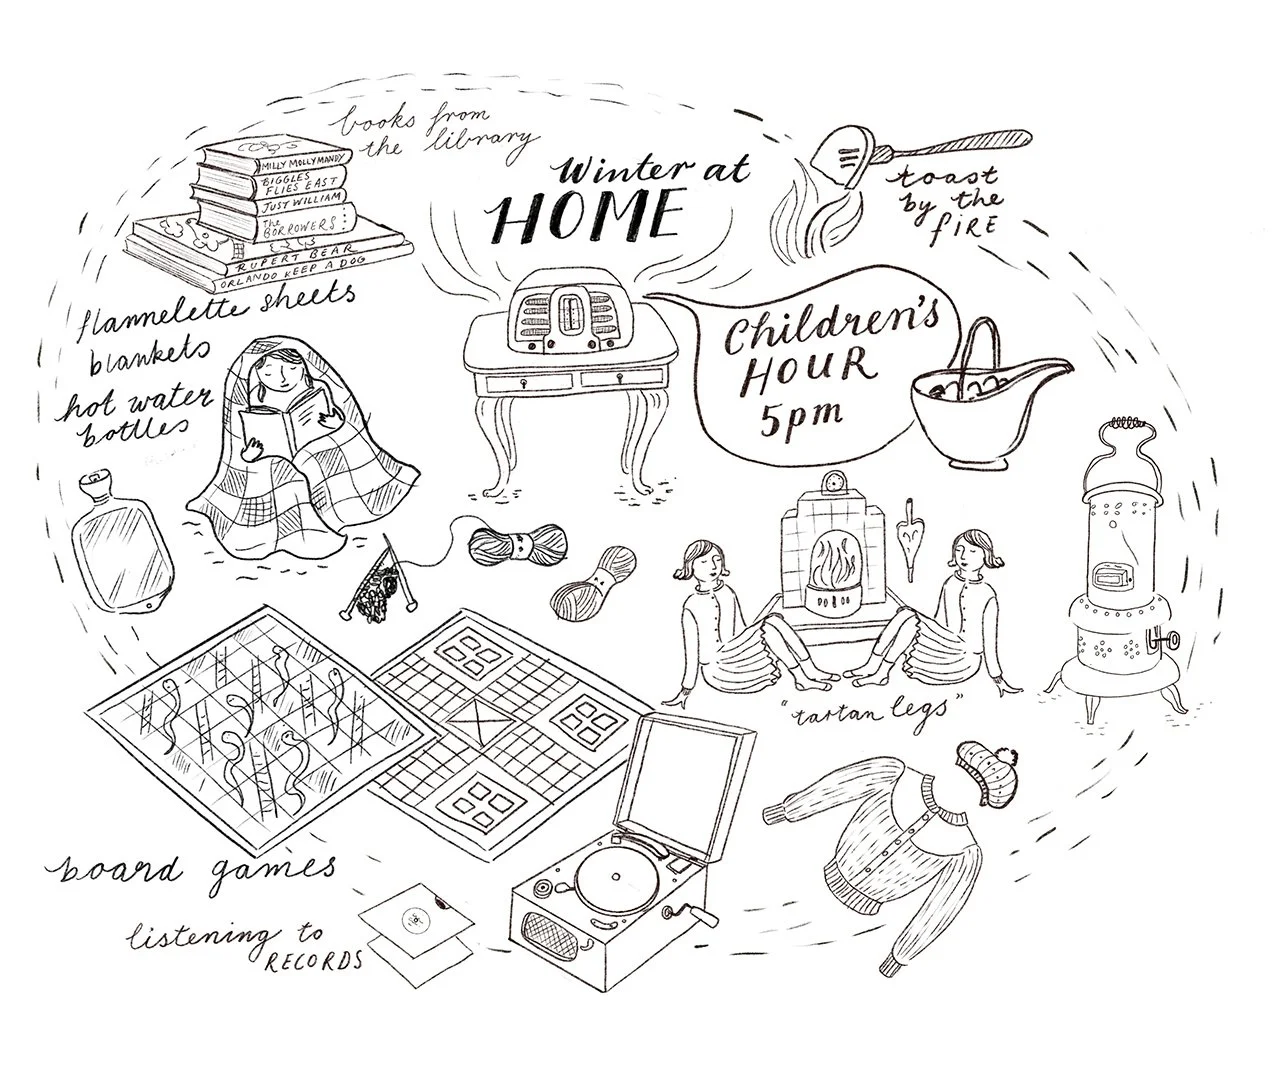 books from
the library
MILLY MOLLY MANDY
BIGGLES
FLIES EAST
JUST WILLIAM
THE
BORROWERS
RUPERT BEAR
ORLANDO KEEP A DOG
Winter at
HOME
toast
by the
fire
flannelette sheets
blankets
hot water
bottles
Children's
HOUR
5pm
"tartan legs"
board games
listening to
RECORDS